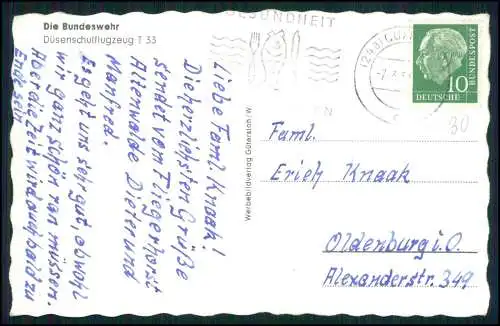 Die Bundeswehr
Düsenschulflugzeug T 33
Liebe Faml. Knaak!
Die herzlichsten Grüße
sendet vom Fliegerhorst
Ahlenwalde Dieter und
Manfred.
Es geht uns sehr gut, obwohl
wir ganz schön ran müssen.
Aber die Zeit wird auch bald zu
Ende sein
Werbebildverlag Gütersloh/W.
GESUNDHEIT
DEUTSCHE
BUNDESPOST
10
30
Faml.
Erich Knaak
Oldenburg i. O.
Alexanderstr. 349